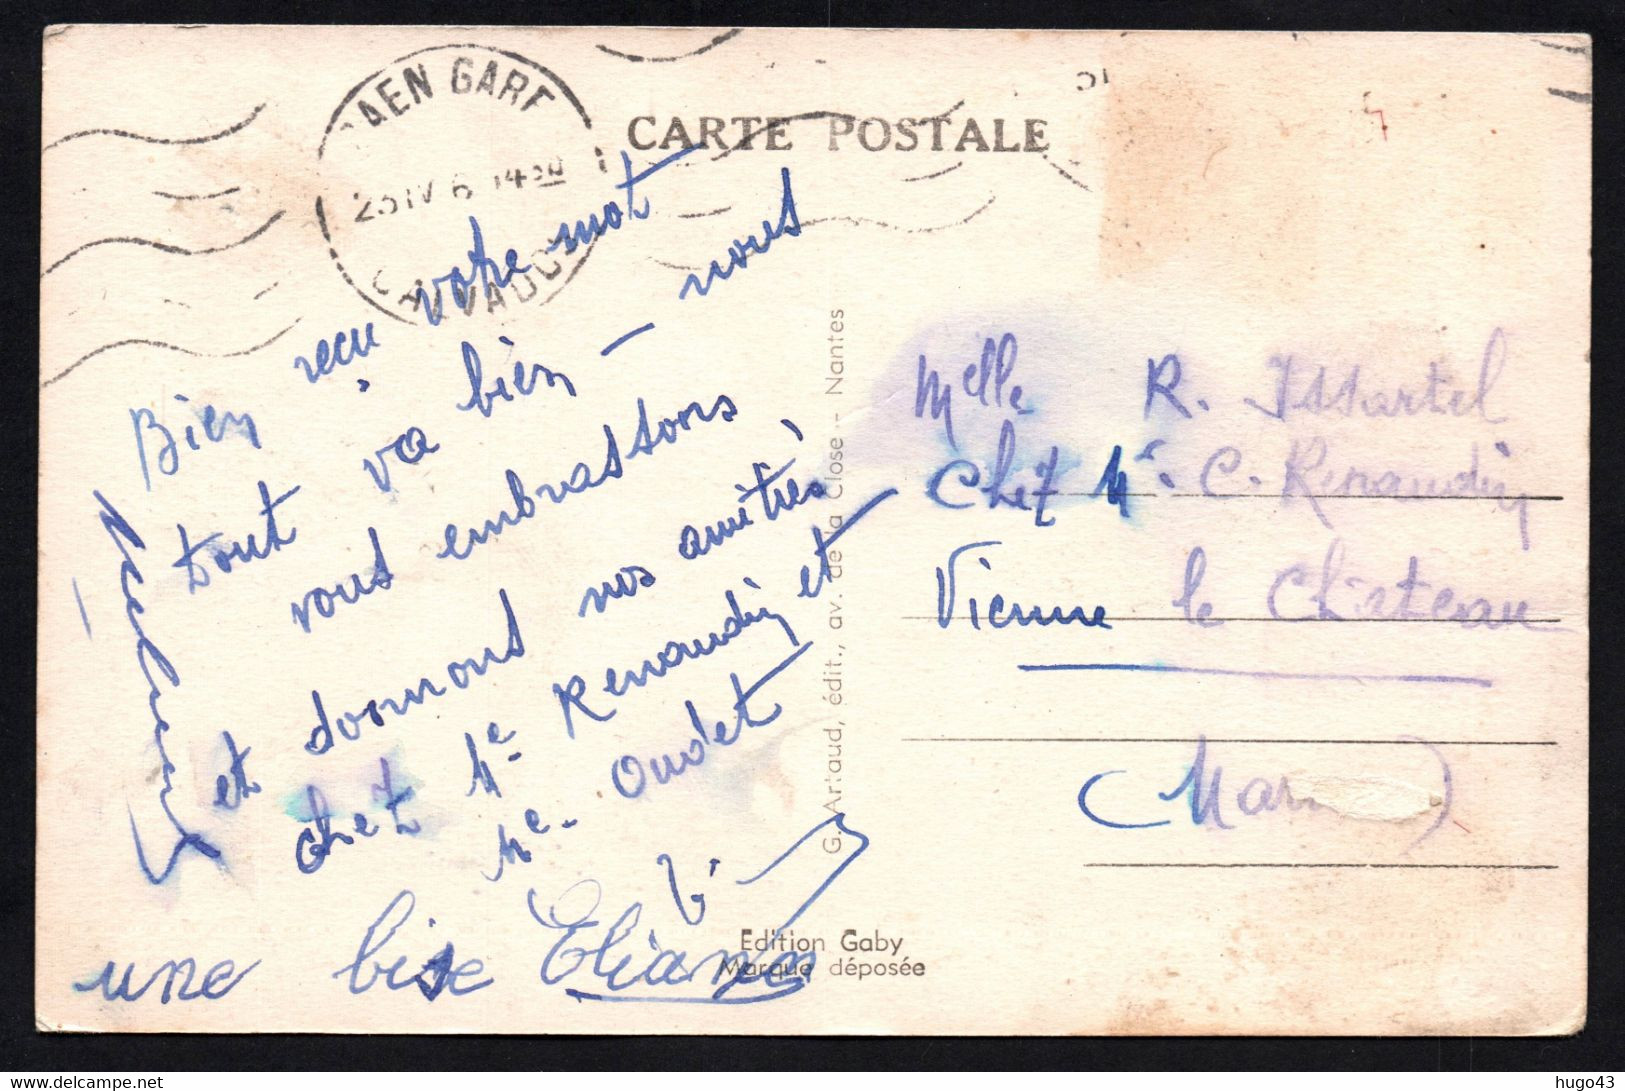 CARTE POSTALE
CAEN GARE
23 IV 6 14
CALVADOS
Bien reçu votre mot
tout va bien — nous
vous embrassons
et donnons nos amitiés
chez Me Renaudin et
Me. Oudet
une bise Eliane
Melle R. Issartel
chez Me. C. Renaudin
Vienne le Château
(Mar
G. Artaud, édit., av. de la Close - Nantes
Edition Gaby
Marque déposée
www.delcampe.net
hugo43